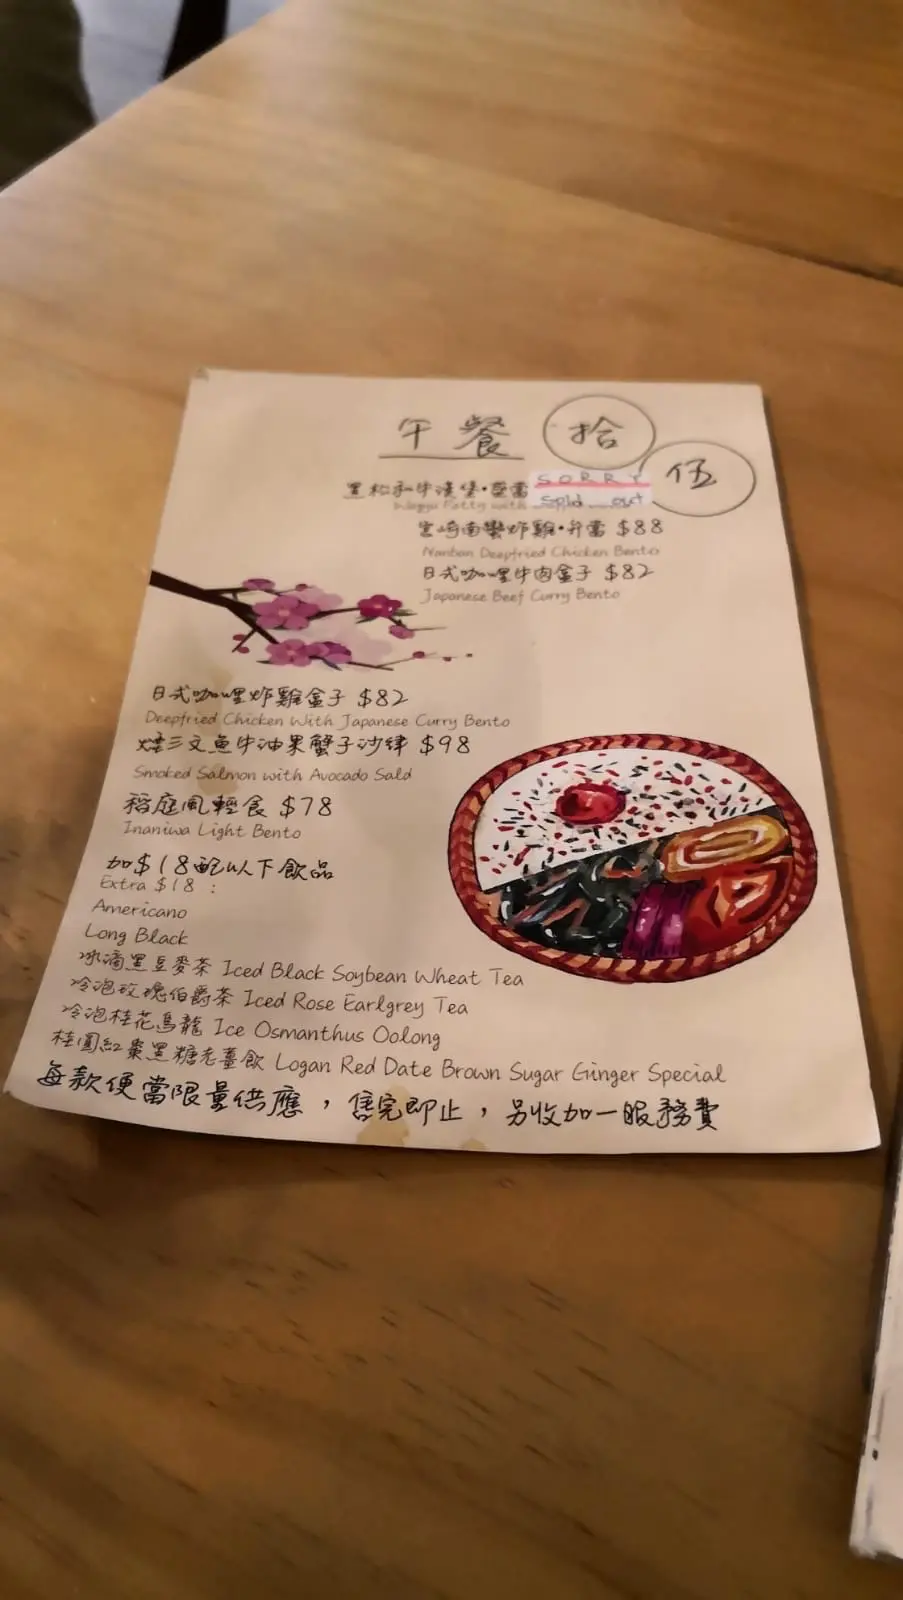 午餐 拾
伍
黑松和牛漢堡·
SORRY
Wagyu Patty with
Sold out
宮崎南蠻炸雞·弁當 $88
Nanban Deepfried Chicken Bento
日式咖喱牛肉盒子 $82
Japanese Beef Curry Bento
日式咖喱炸雞盒子 $82
Deepfried Chicken With Japanese Curry Bento
煙三文魚牛油果蟹子沙律 $98
Smoked Salmon with Avocado Sald
稻庭風輕食 $78
Inaniwa Light Bento
加$18配以下飲品
Extra $18 :
Americano
Long Black
冰滴黑豆麥茶 Iced Black Soybean Wheat Tea
冷泡玫瑰伯爵茶 Iced Rose Earlgrey Tea
冷泡桂花烏龍 Ice Osmanthus Oolong
桂圓紅棗黑糖老薑飲 Logan Red Date Brown Sugar Ginger Special
每款便當限量供應，售完即止，另收加一服務費